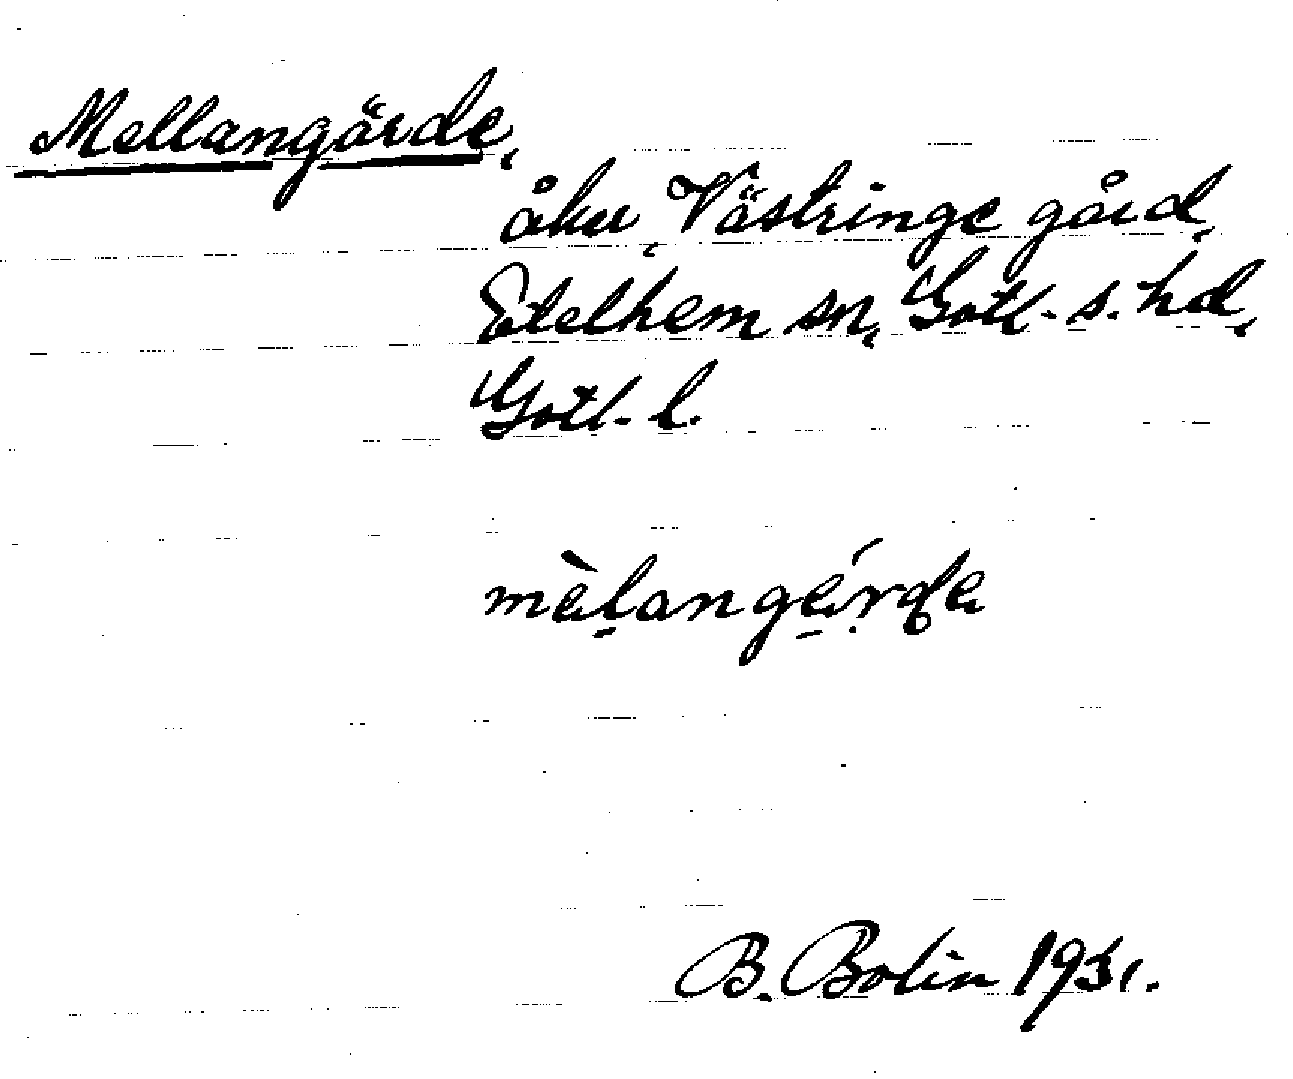 Mellangärde,
åker, Västringe gård,
Etelhem sn, Gotl. s. hd,
Gotl. l.
mèlangę́rḍe
B. Bolin 1931.